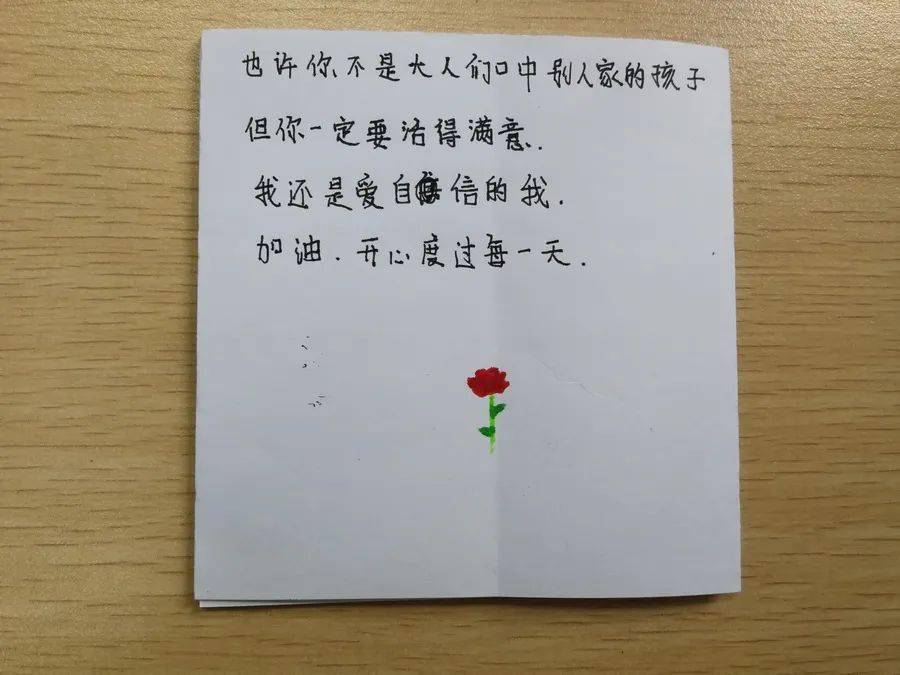 也许你不是大人们口中别人家的孩子
但你一定要活得满意.
我还是爱自信的我.
加油.开心度过每一天.